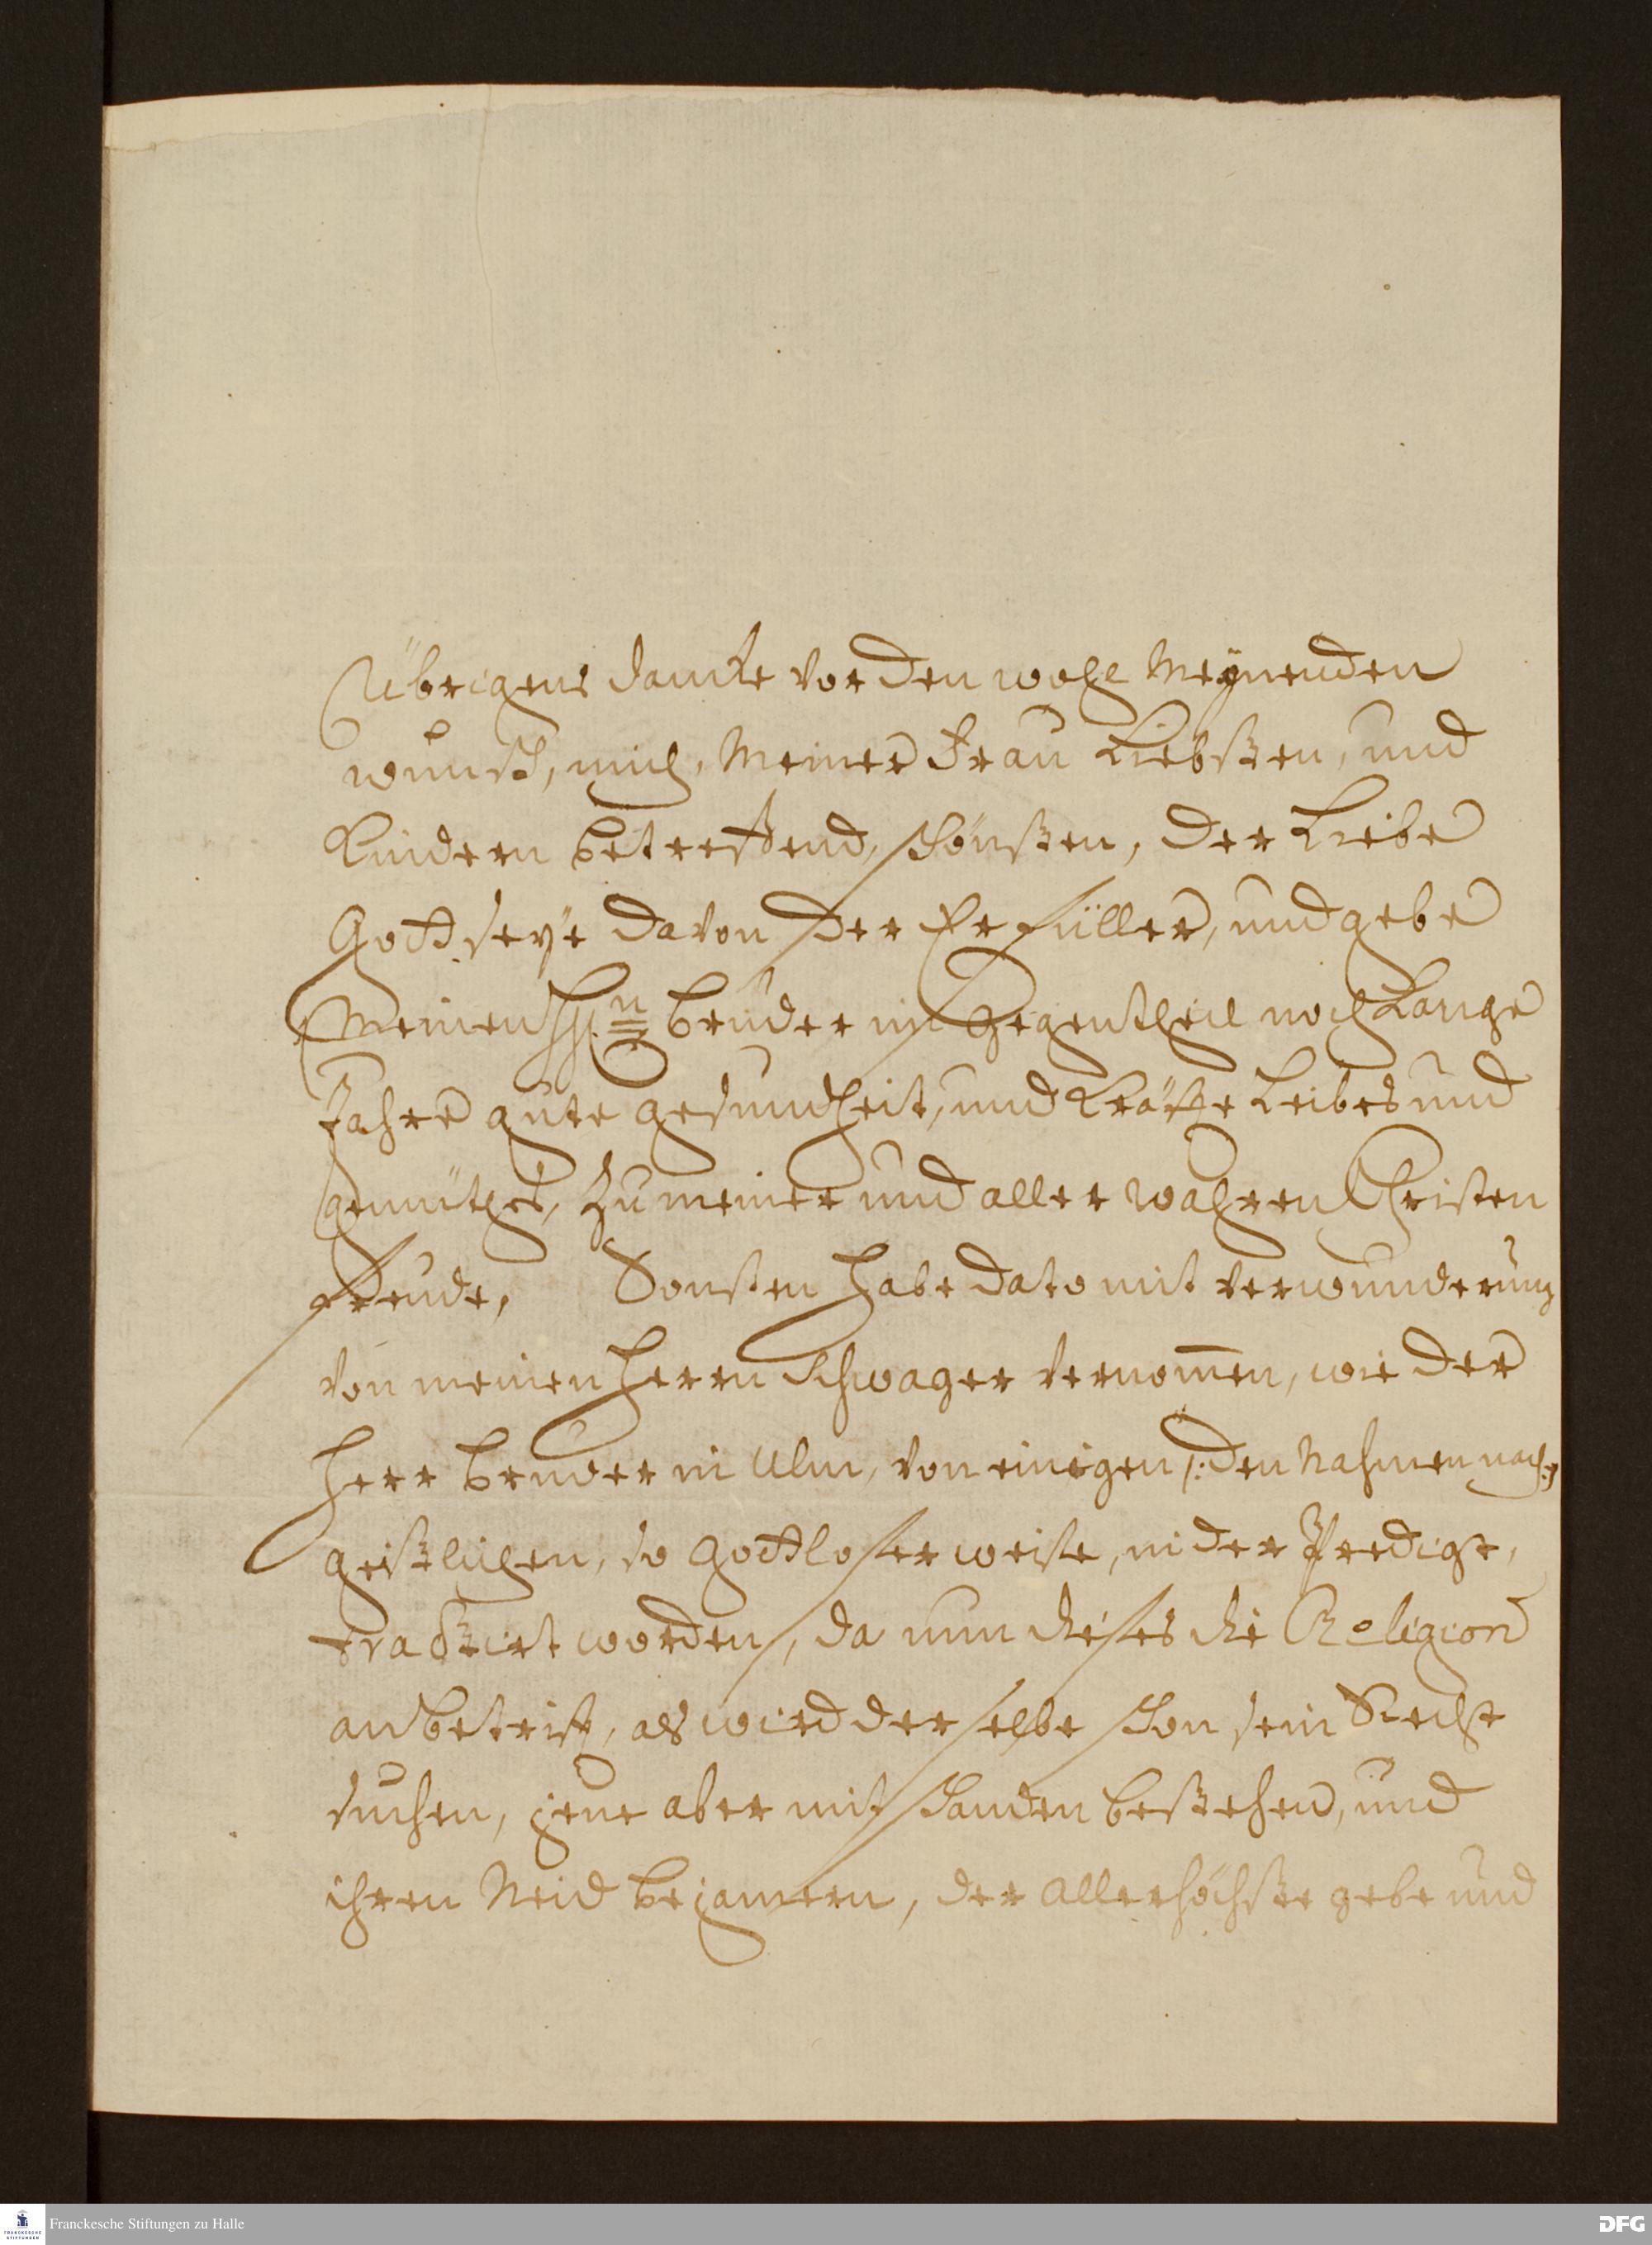 Übrigens dancke vor den wohl Meÿnenden
wunsch, mich, Meiner Frau Liebsten, und
Kindern betreffend, schönsten, der Liebe
Gott seye davon der Erfüller, und gebe
Meinen hh. n Bruder im Gegentheil noch Lange
Jahre gute gesundheit, und Kräffte Leibes und
gemüthes, zu meiner und aller wahren Christen
freude, Sonsten habe dato mit verwunderung
von meinen Herrn Schwager vernom̄en, wie der
Herr Bruder in Ulm, von einigen /: den Nahmen nach :/
geistlichen, so Gottloser weise, in der Predigt,
tractirt worden, da nun dieses die Religion
anbetrift, als wird derselbe schon sein Recht
suchen, jene aber mit schanden bestehen, und
ihren Neid bejamern, der Allerhöchste gebe und
Franckesche Stiftungen zu Halle
DFG